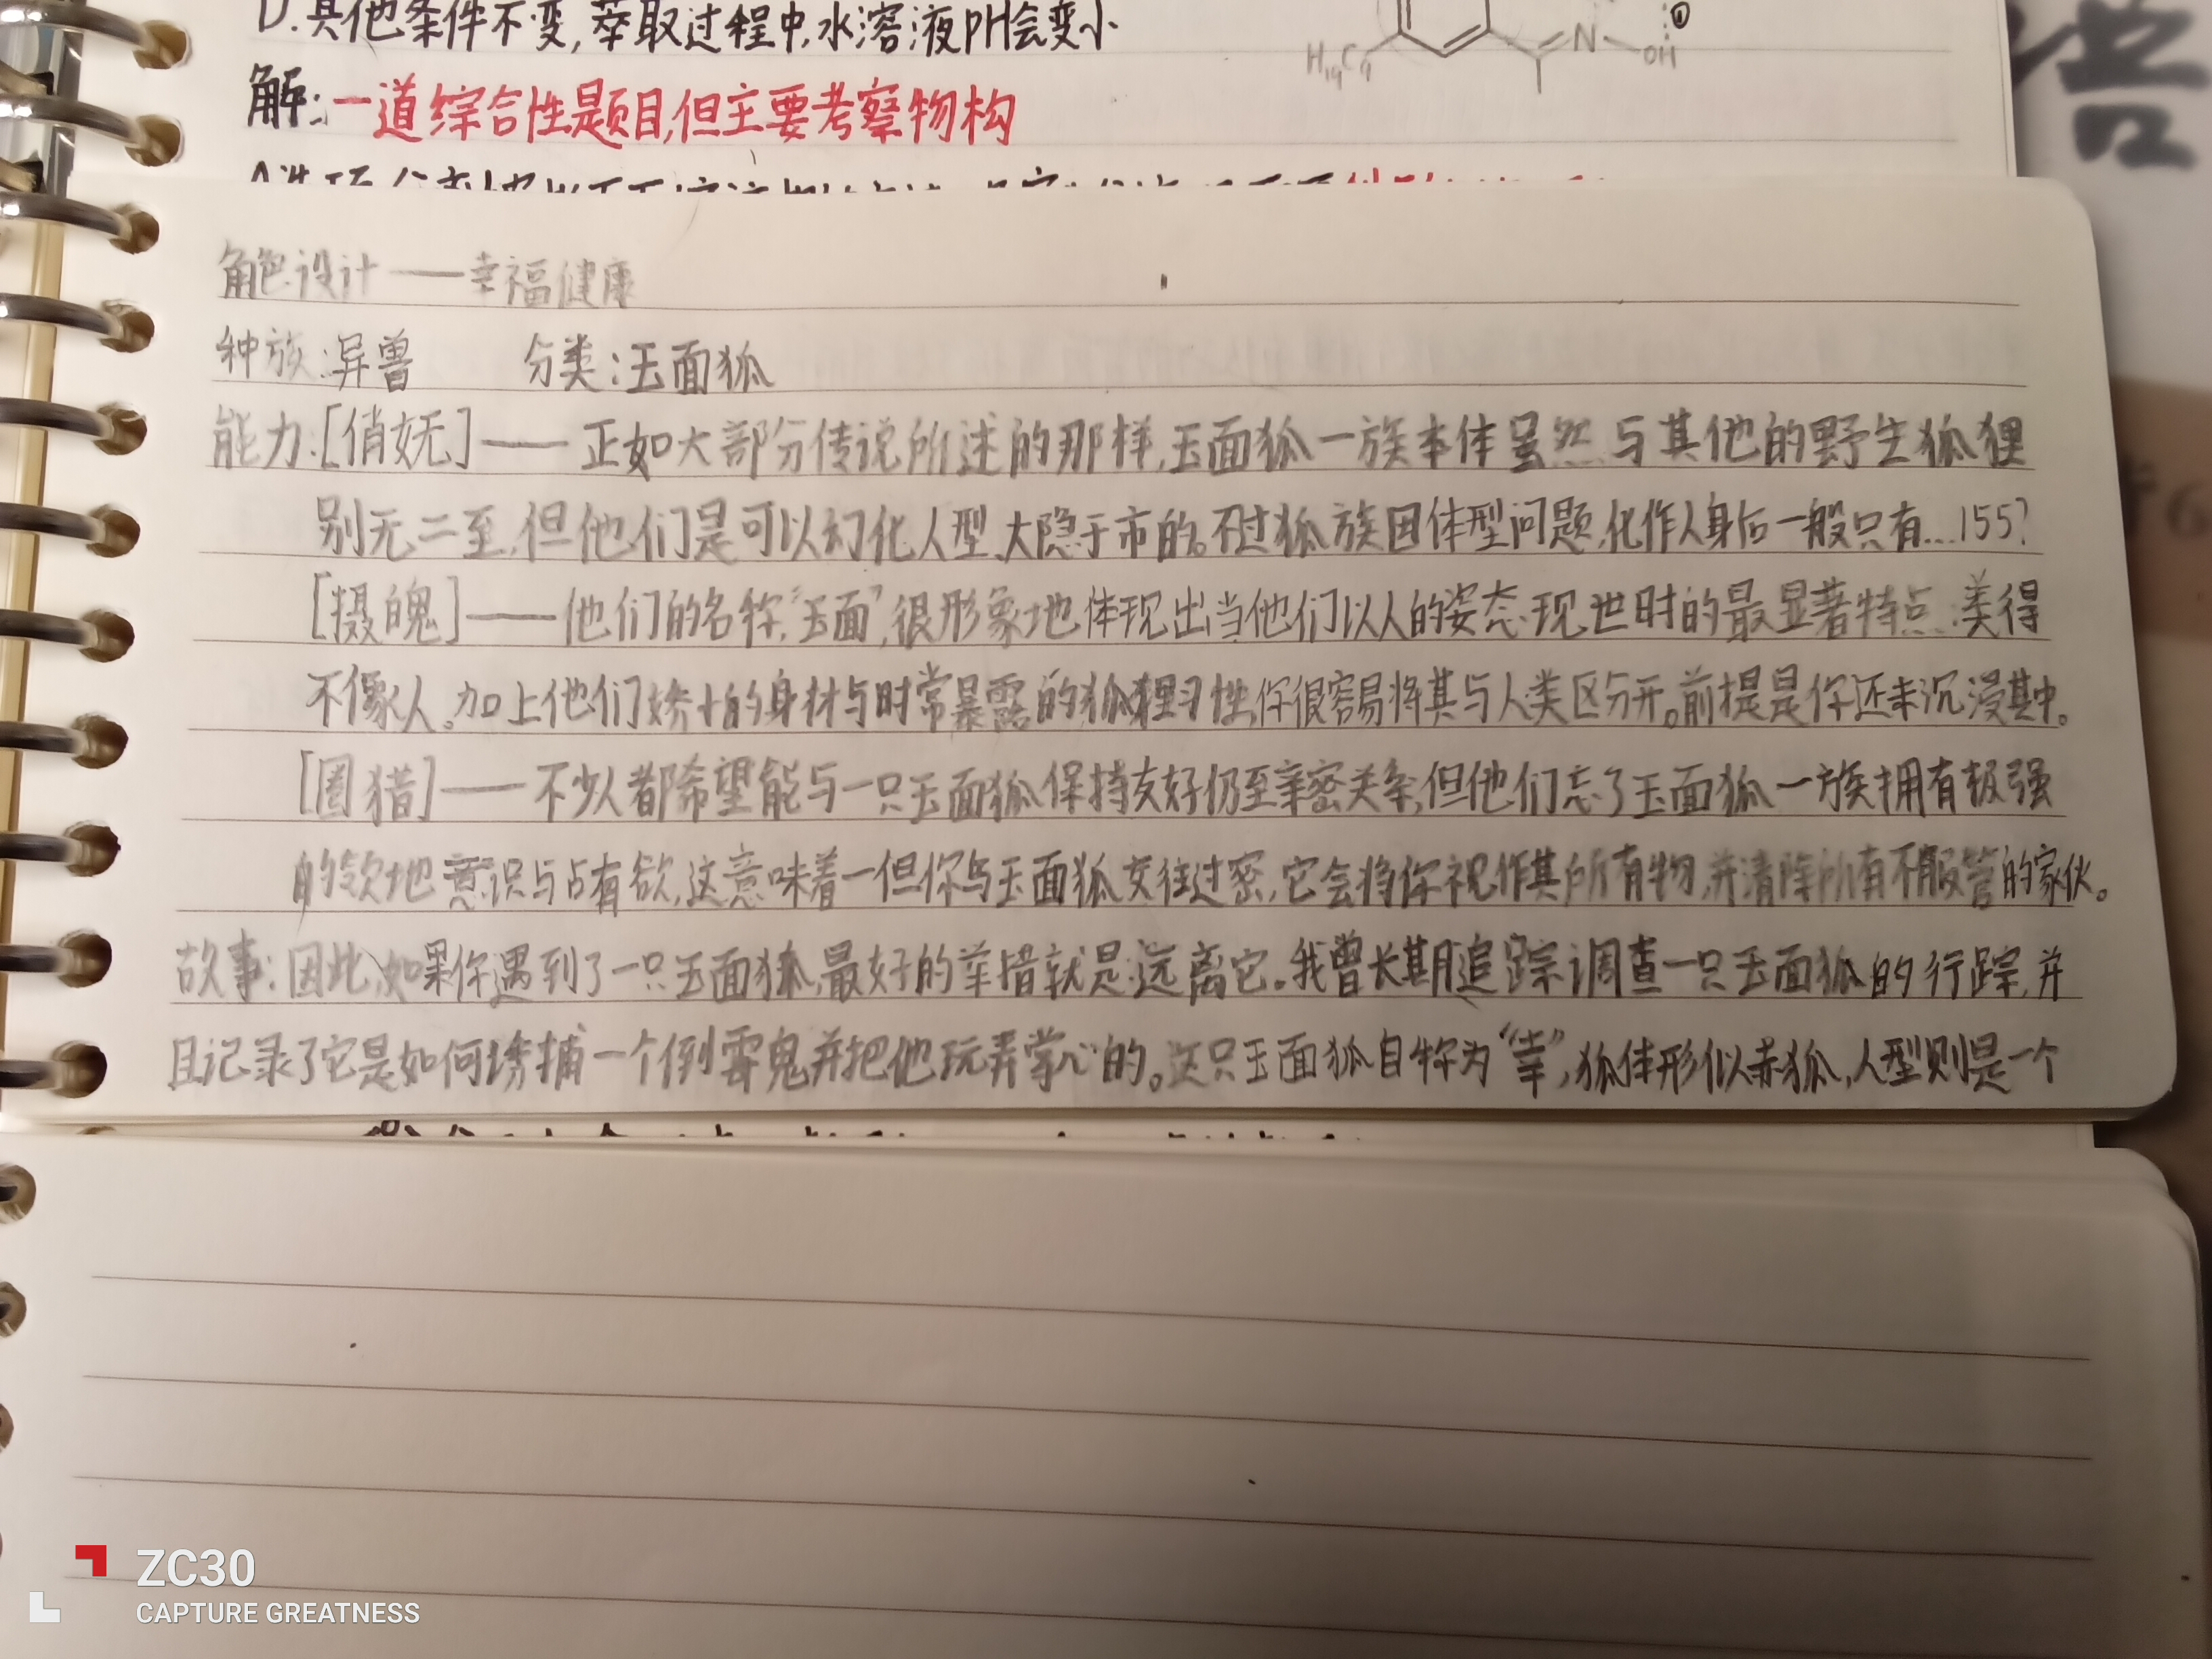 D.其他条件不变,萃取过程中,水溶液pH会变小
H₁₉C₉
N
OH
解:一道综合性题目,但主要考察物构
角色设计——幸福健康
种族:异兽 分类:玉面狐
能力:[俏妩]——正如大部分传说所述的那样,玉面狐一族本体虽然与其他的野生狐狸
别无二至,但他们是可以幻化人型,大隐于市的。不过狐族因体型问题,化作人身后一般只有...155?
[摄魄]——他们的名称,"玉面",很形象地体现出当他们以人的姿态现世时的最显著特点:美得
不像人。加上他们娇小的身材与时常暴露的狐狸习性,你很容易将其与人类区分开。前提是你还未沉浸其中。
[圈猎]——不少人都希望能与一只玉面狐保持友好仍至亲密关系,但他们忘了玉面狐一族拥有极强
的领地意识与占有欲,这意味着一但你与玉面狐交往过密,它会将你视作其所有物,并清除所有不服管的家伙。
故事:因此,如果你遇到了一只玉面狐,最好的举措就是远离它。我曾长期追踪调查一只玉面狐的行踪,并
且记录了它是如何诱捕一个倒霉鬼并把他玩弄掌心的。这只玉面狐自称为"幸",狐体形似赤狐,人型则是一个
ZC30
CAPTURE GREATNESS